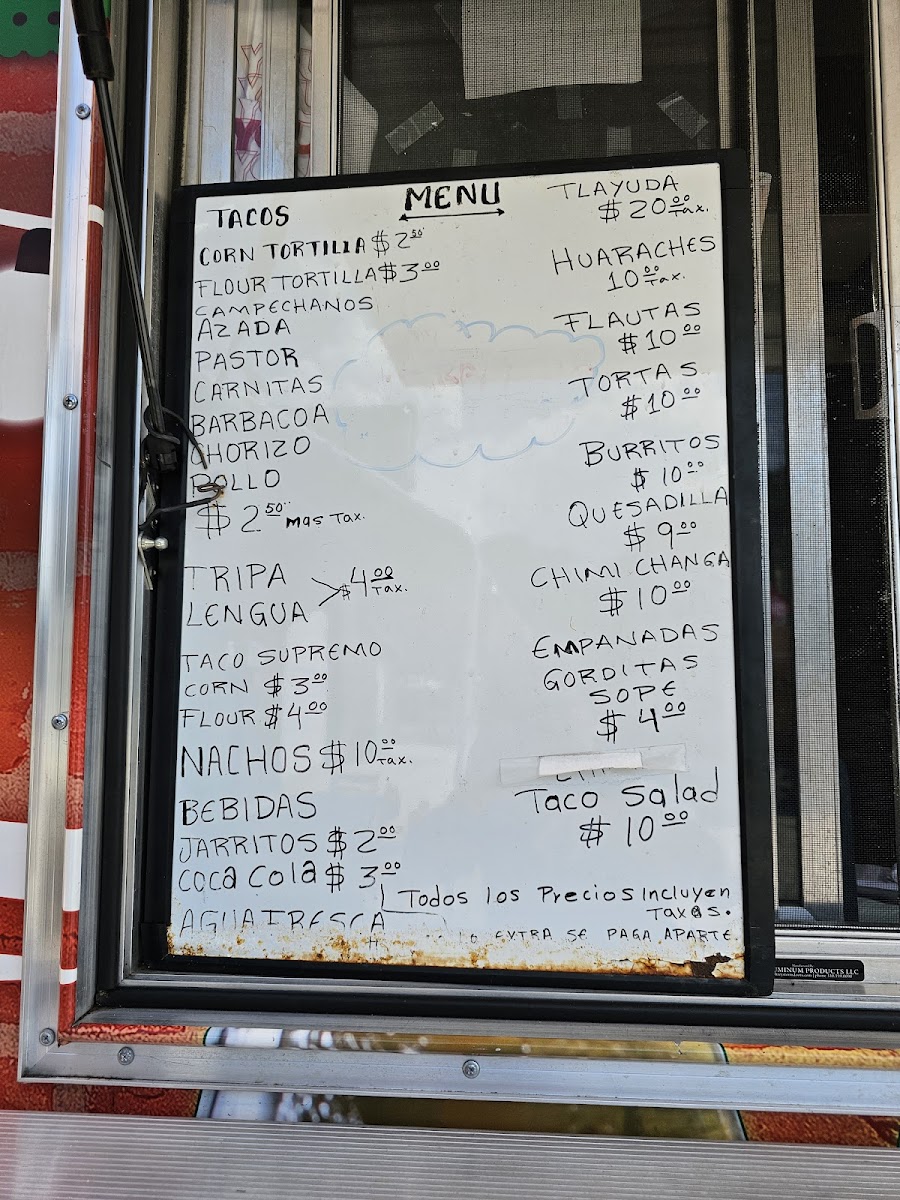 MENU
TACOS
CORN TORTILLA $2.50
FLOUR TORTILLA $3.00
CAMPECHANOS
AZADA
PASTOR
CARNITAS
BARBACOA
CHORIZO
POLLO
$2.50 mas Tax.
TRIPA
LENGUA
$4.00 Tax.
TACO SUPREMO
CORN $3.00
FLOUR $4.00
NACHOS $10.00 Tax.
BEBIDAS
JARRITOS $2.00
COCA COLA $3.00
AGUA FRESCA
TLAYUDA
$20.00 Tax.
HUARACHES
10.00 Tax.
FLAUTAS
$10.00
TORTAS
$10.00
BURRITOS
$10.00
QUESADILLA
$9.00
CHIMI CHANGA
$10.00
EMPANADAS
GORDITAS
SOPE
$4.00
Taco Salad
$10.00
Todos los Precios Incluyen
Taxes.
LO EXTRA SE PAGA APARTE
UMINUM PRODUCTS LLC